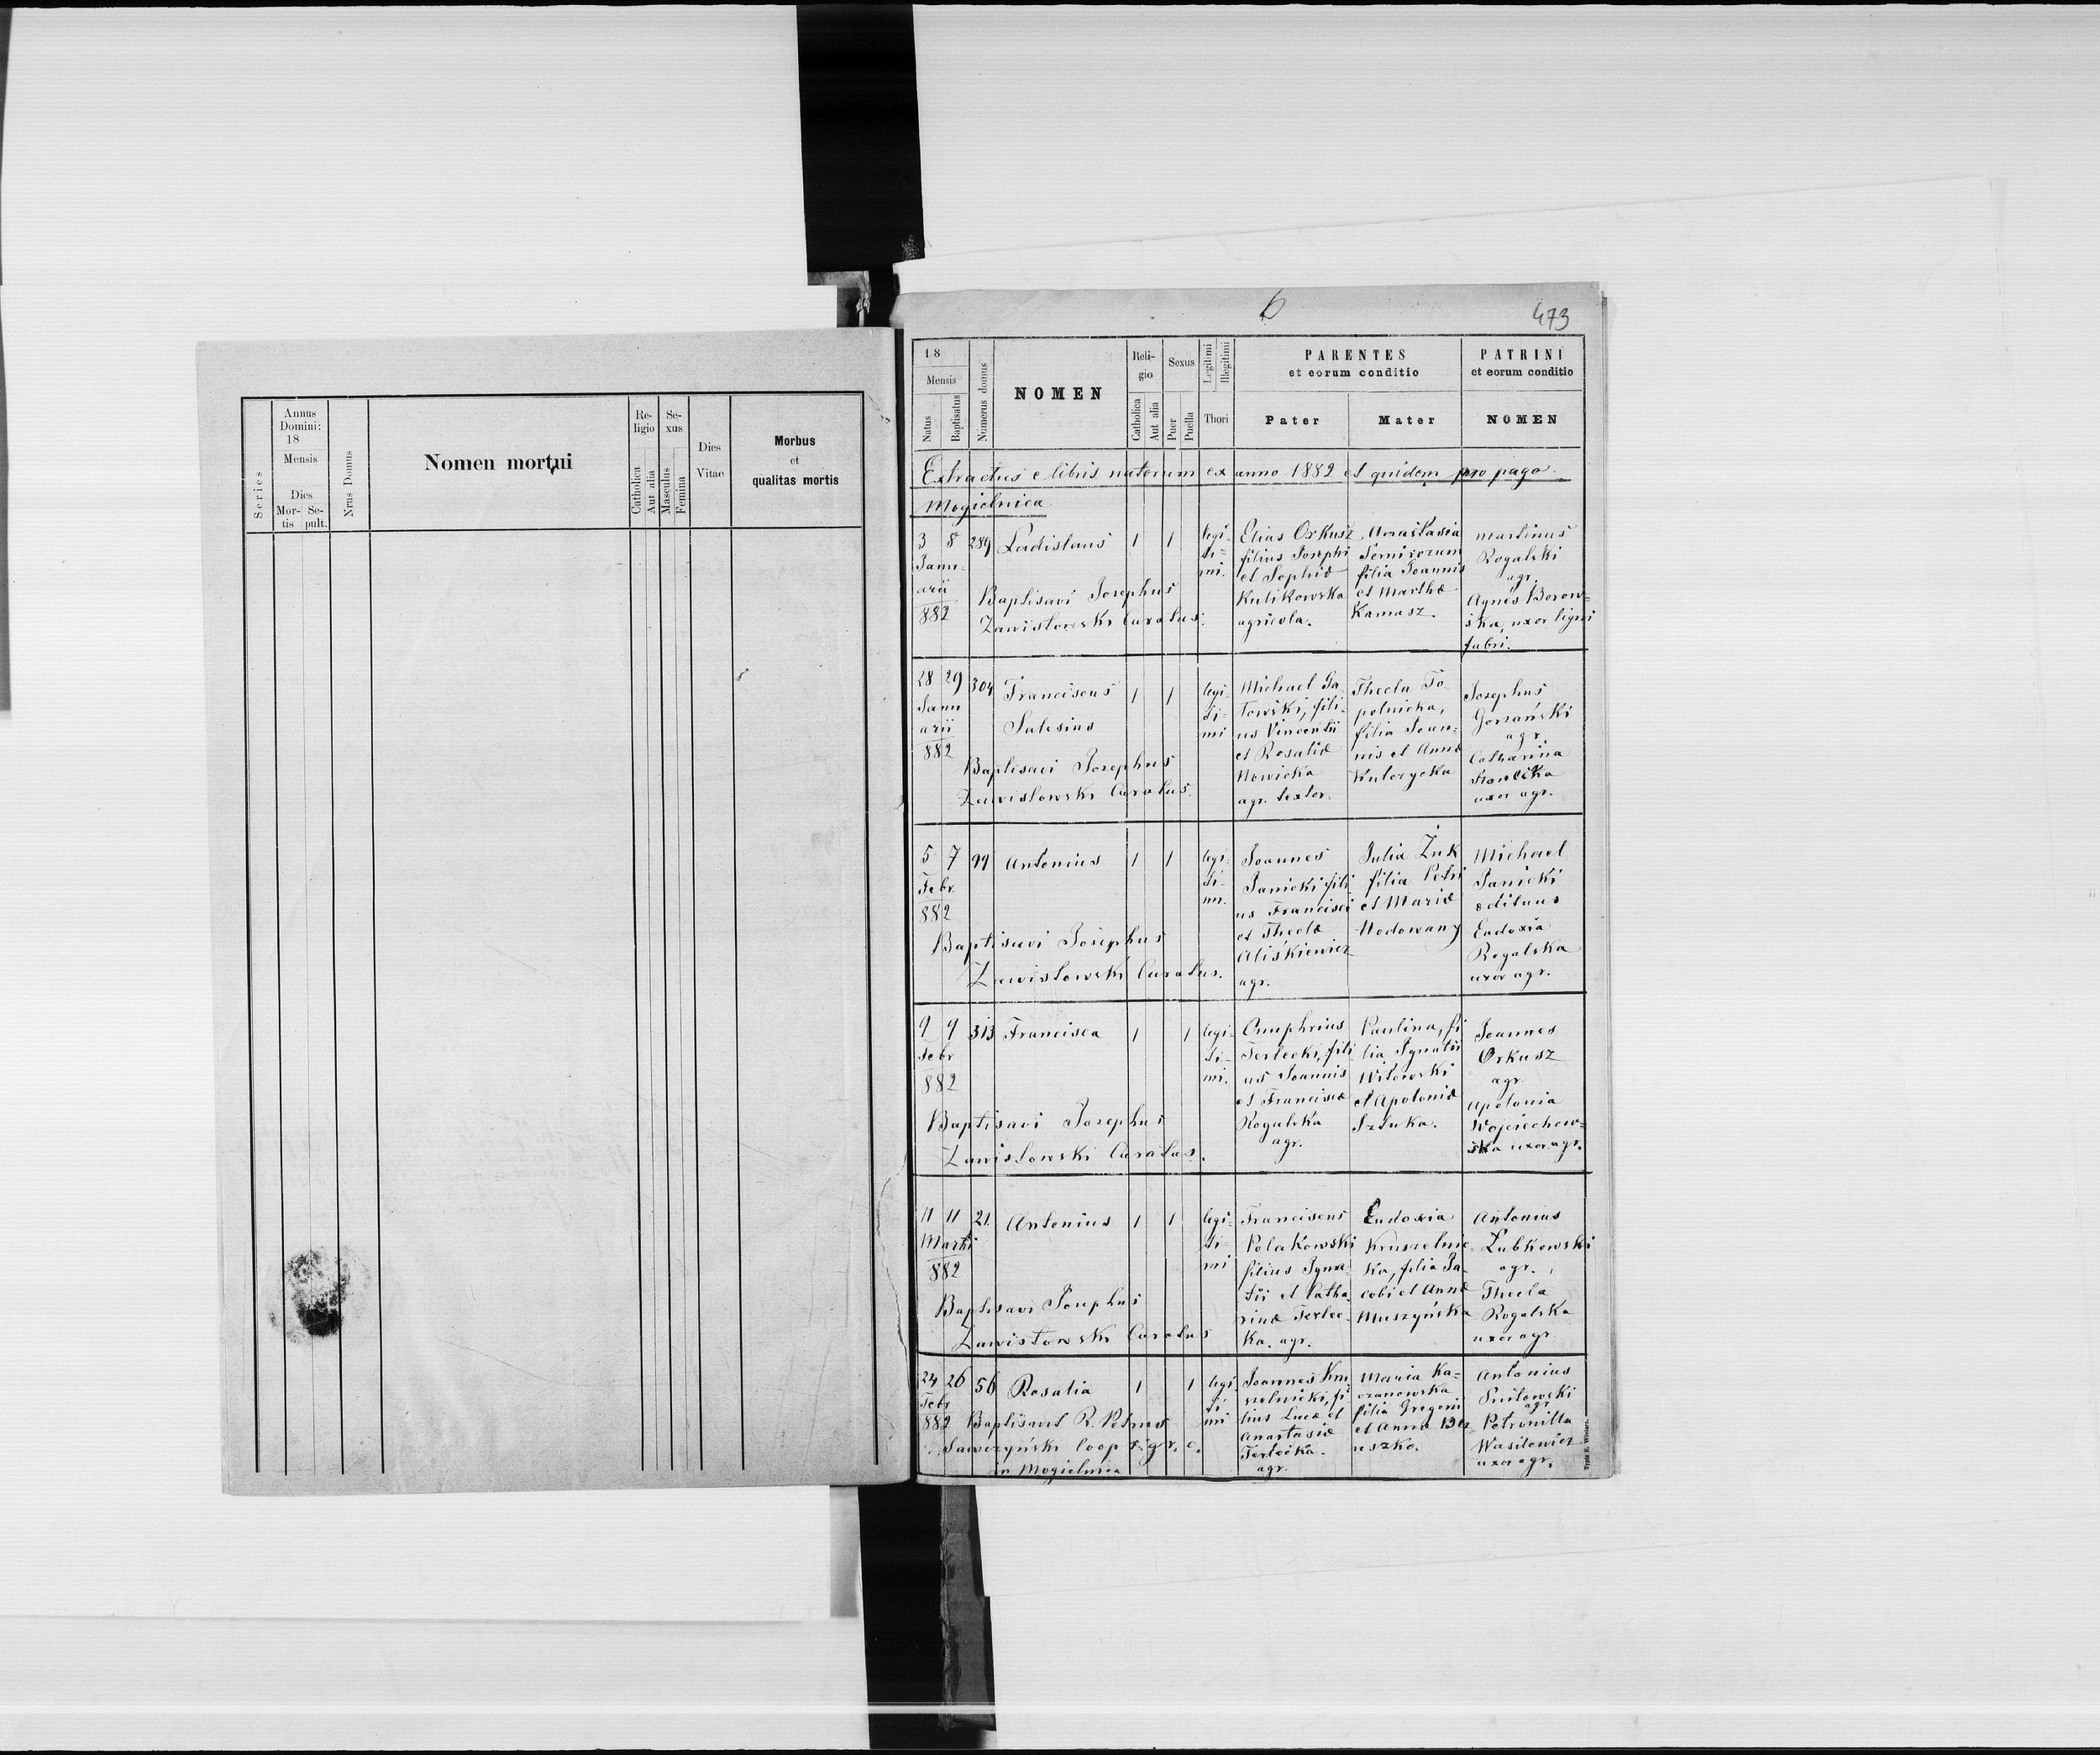 Series
Annus
Domini:
18
Mensis
Dies
Mor-
tis
Se-
pult.
Nrus Domus
Nomen mortui
Re-
ligio
Catholica
Aut alia
Se-
xus
Masculus
Femina
Dies
Vitae
Morbus
et
qualitas mortis
6
473
18
Mensis
Natus
Baptisatus
Numerus domus
NOMEN
Reli-
gio
Catholica
Aut alia
Sexus
Puer
Puella
Legitimi
Illegitimi
Thori
PARENTES
et eorum conditio
Pater
Mater
PATRINI
et eorum conditio
NOMEN
Extractus e libris natorum ex anno 1882 et quidem pro pago
Mogielnica
3 8 289 Ladislaus 1 1
Janu-
arii
882
Baptisavi Josephus
Zawistowski Curatus.
legi-
ti-
mi.
Elias Orkusz
filius Josephi
et Sophiæ
Kulikowska
agricola.
Anastasia
filia Joannis
et Marthæ
Kamasz.
Martinus
Rogalski
agr.
Agnes Borow-
ska, uxor ligni
fabri.
28 29 304 Franciscus 1 1
Salesius
Janu
arii
882
Baptisavi Josephus
Zawistowski Curatus.
legi-
ti-
mi
Michael Ga-
towski, fili-
us Vincentii
et Rosaliæ
Nowicka
agr. textor.
Thecla To-
polnicka,
filia Joan-
nis et Annæ
Kulczycka
Josephus
agr.
Catharina
uxor agr.
5 7 99 Antonius 1 1
Febr.
882
Baptisavi Josephus
Zawistowski Curatus.
legi-
ti-
mi.
Joannes
Janicki fili-
us Francisci
et Theclæ
Aliskiewicz
agr.
Julia Żuk
filia Petri
et Mariæ
Hodowany
Michael
Janicki
ædituus
Eudoxia
Rogalska
uxor agr.
9 9 313 Francisca 1 1
Febr
882
Baptisavi Josephus
Zawistowski Curatus.
legi-
ti-
mi.
Onuphrius
Terlecki, fili
us Joannis
et Franciscæ
Rogalska
agr.
Paulina, fi
lia Ignatii
Witowski
et Apoloniæ
Sztuka.
Joannes
Orkusz
agr.
Apolonia
Wojciechow-
ska uxor agr.
11 11 21 Antonius 1 1
Martii
882
Baptisavi Josephus
Zawistowski Curatus
legi-
ti-
mi
Franciscus
Polakowski
filius Igna-
tii et Catha-
rinæ Terlec-
ka. agr.
Eudoxia
Kruszelnic-
ka, filia Ja-
cobi et Annæ
Muszyńska
Antonius
Lubkowski
agr.
Thecla
Rogalska
uxor agr.
24 26 56 Rosalia 1 1
Febr
882
Baptisavit R. Petrus
Sawczyński Coop r. gr. c.
in Mogielnica
legi
ti
mi
Joannes Kru
szelnicki, fi
lius Lucæ et
Anastasiæ
Terlecka.
agr.
Maria Ka-
czanowska
filia Gregorii
et Annæ
Antonius
agr
Petronilla
Wasilewicz
uxor agr.
Typis E. Winiarz.